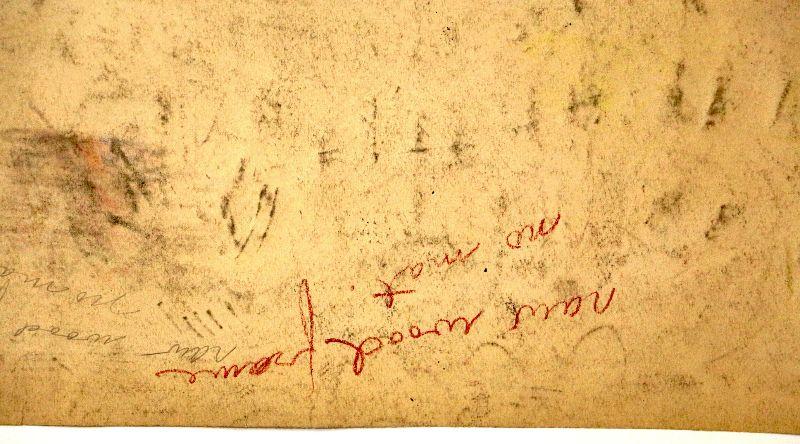 raw wood frame
no mat.
raw wood
no ma